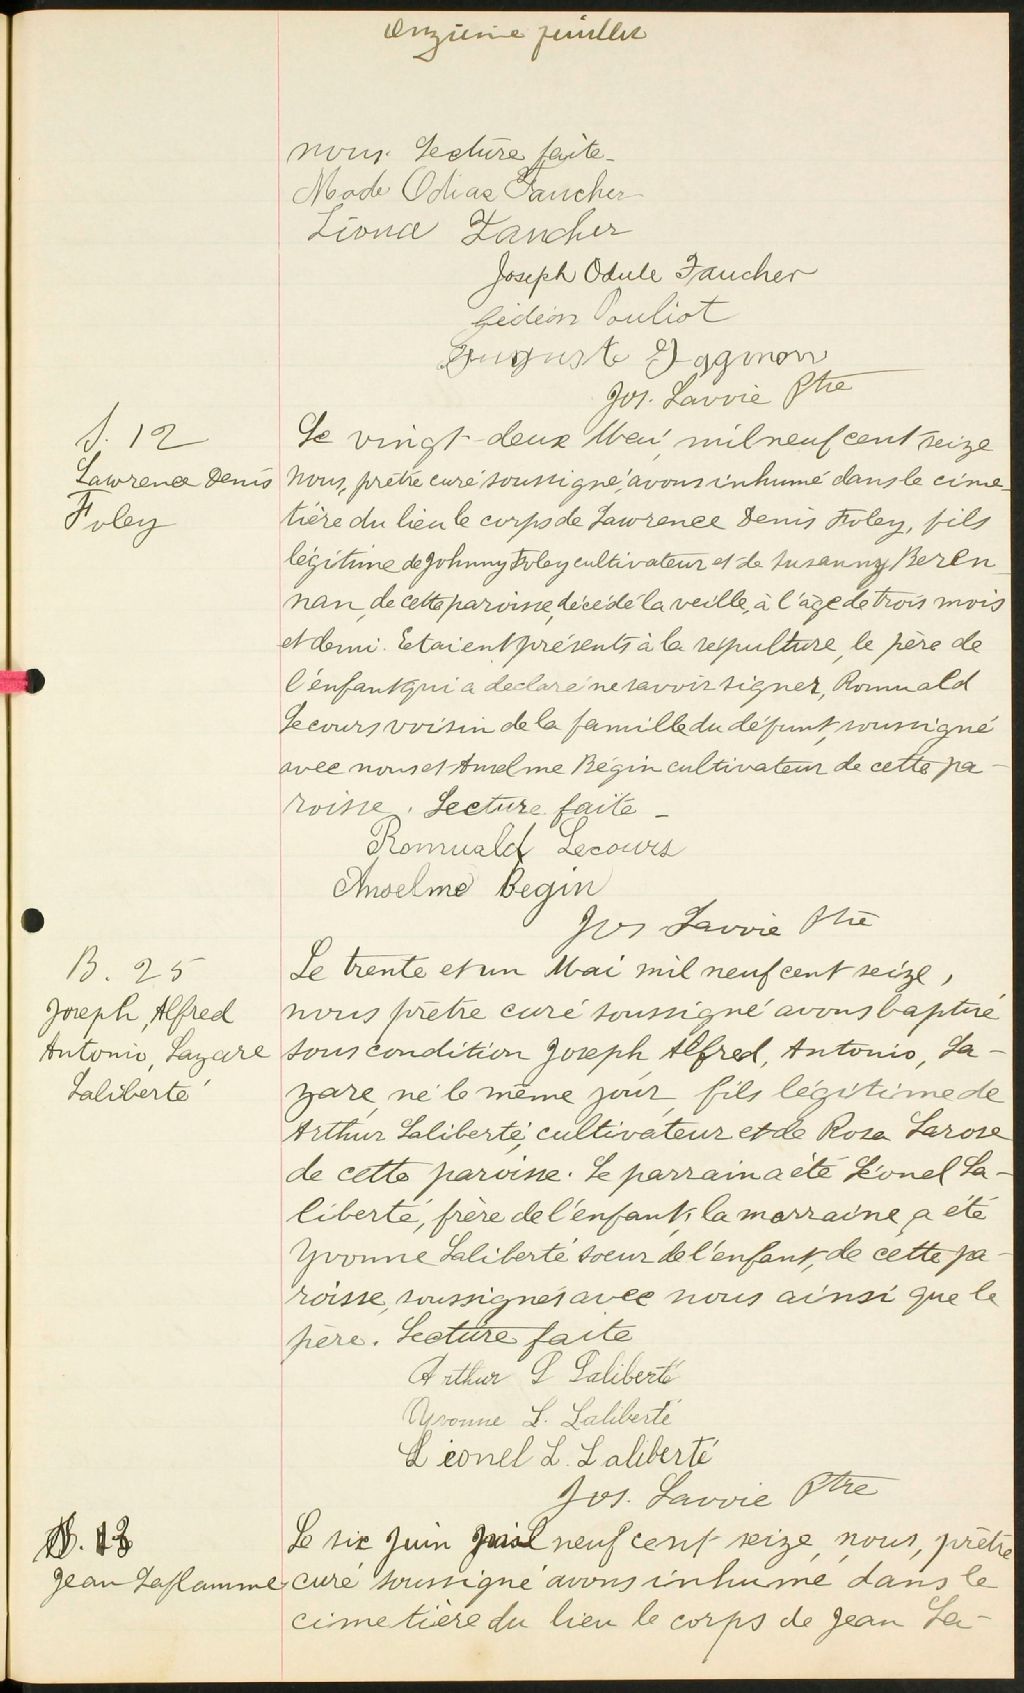 onzième feuillet
nous. Lecture faite_
Made Odias Faucher
Liona Faucher
Joseph Odule Faucher
Gédéon Pouliot
Auguste Gagnon
Jos. Lavoie Ptre
S. 12
Lawrence Denis
Foley
Le vingt-deux Mai, mil neuf cent seize
nous, prêtre curé soussigné, avons inhumé dans le cime-
tière du lieu le corps de Lawrence Denis Foley, fils
légitime de Johnny Foley cultivateur et de Susanny Beren-
nan, de cette paroisse, décédé la veille, à l'âge de trois mois
et demi. Etaient présents à la sépulture, le père de
l'enfant qui a déclaré ne savoir signer, Romuald
Lecours voisin de la famille du défunt, soussigné
avec nous et Anselme Bégin cultivateur de cette pa-
roisse. Lecture faite_
Romuald Lecours
Anselme Begin
Jos Lavoie Ptre
B. 25
Joseph, Alfred
Antonio, Lazare
Laliberté
Le trente et un Mai mil neuf cent seize,
nous prêtre curé soussigné avons baptisé
sous condition Joseph Alfred, Antonio, La-
zare, né le même jour, fils légitime de
Arthur Laliberté, cultivateur et de Rosa Larose
de cette paroisse. Le parrain a été Léonel La-
liberté, frère de l'enfant, la marraine a été
Yvonne Laliberté soeur de l'enfant, de cette pa-
roisse, soussignés avec nous ainsi que le
père. Lecture faite
Arthur L Laliberté
Yvonne L. Laliberté
Lionel L. Laliberté
Jos. Lavoie Ptre
S. 13
Jean Laflamme
Le six Juin mil neuf cent seize, nous, prêtre
curé soussigné avons inhumé dans le
cimetière du lieu le corps de Jean La-